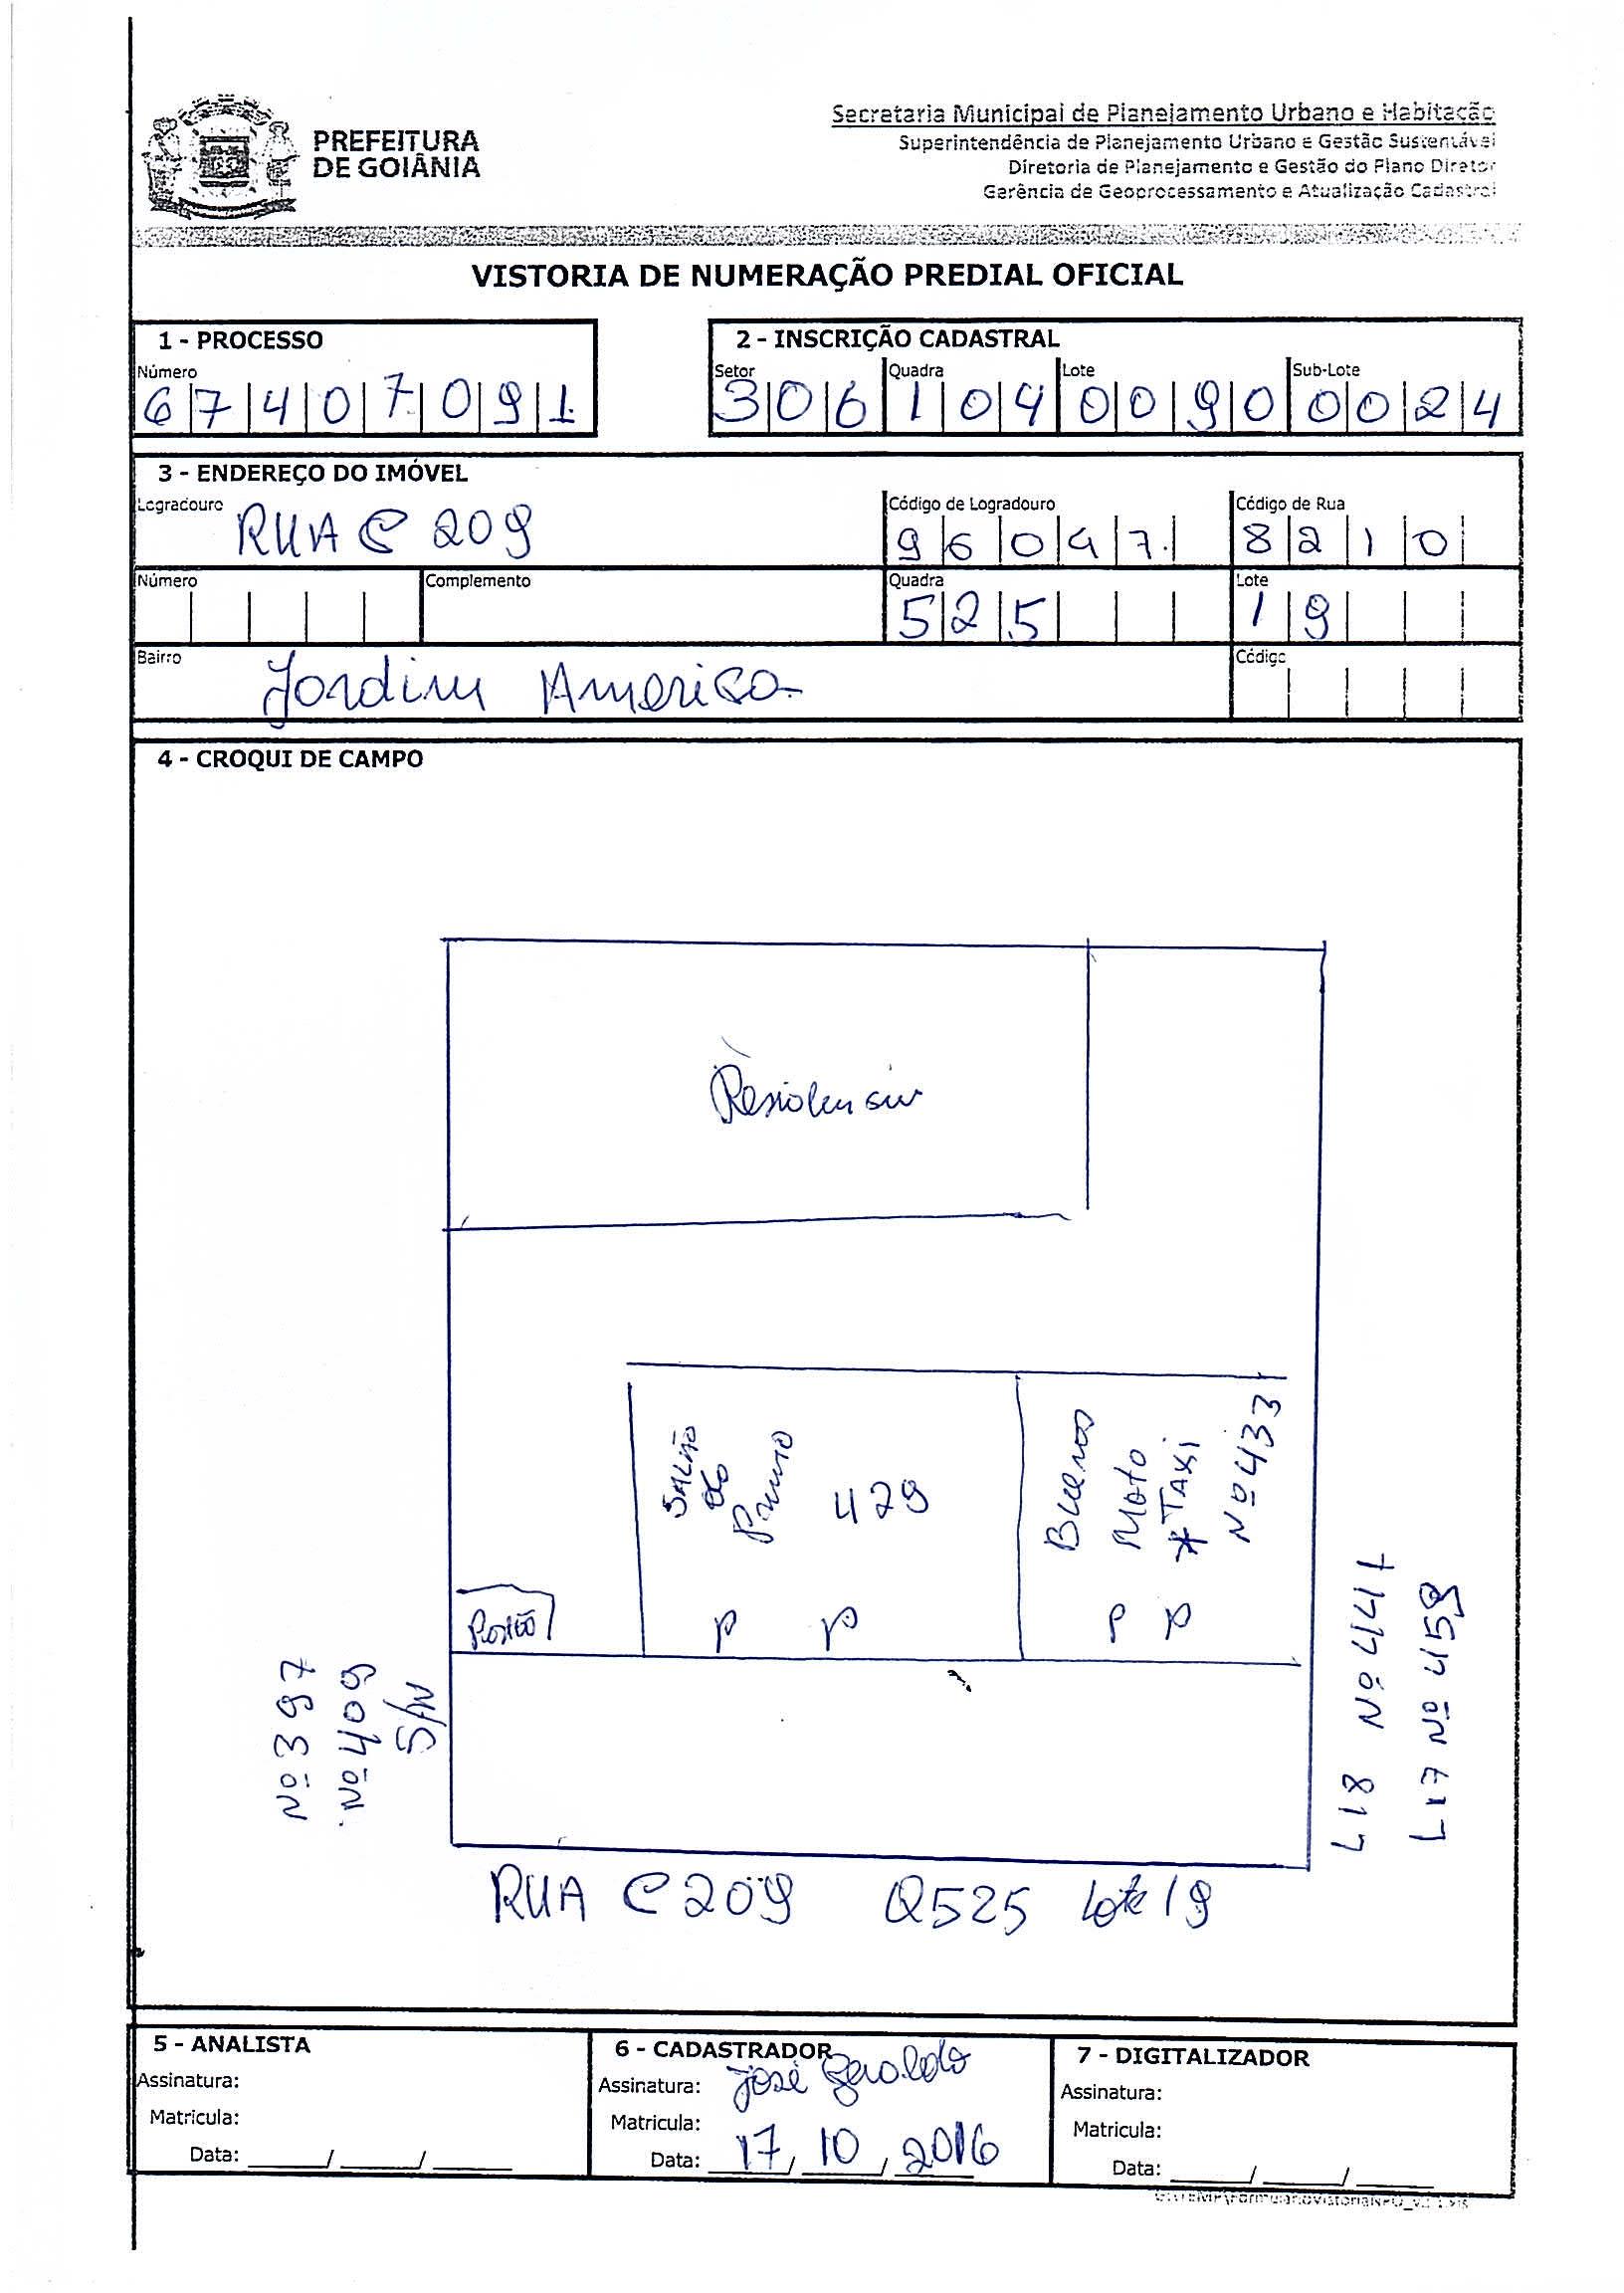 PREFEITURA
DE GOIÂNIA
Secretaria Municipal de Planejamento Urbano e Habitação
Superintendência de Planejamento Urbano e Gestão Sustentável
Diretoria de Planejamento e Gestão do Plano Diretor
Gerência de Geoprocessamento e Atualização Cadastral
VISTORIA DE NUMERAÇÃO PREDIAL OFICIAL
1 - PROCESSO
Número
67407091
2 - INSCRIÇÃO CADASTRAL
Setor Quadra Lote Sub-Lote
306 104 0090 0024
3 - ENDEREÇO DO IMÓVEL
Logradouro Código de Logradouro Código de Rua
RUA C 209 96047 8210
Número Complemento Quadra Lote
525 19
Bairro Código
Jardim America
4 - CROQUI DE CAMPO
SALÃO
do
429
Buenos
Moto
TAXI
Nº 433
P P
P P
Portão
Nº 397
Nº 409
S/N
L 18 Nº 447
L 17 Nº 459
RUA C 209 Q525 Lote 19
5 - ANALISTA
Assinatura:
Matrícula:
Data: ____/____/____
6 - CADASTRADOR
Assinatura: José Geraldo
Matrícula:
Data: 17/10/2016
7 - DIGITALIZADOR
Assinatura:
Matrícula:
Data: ____/____/____